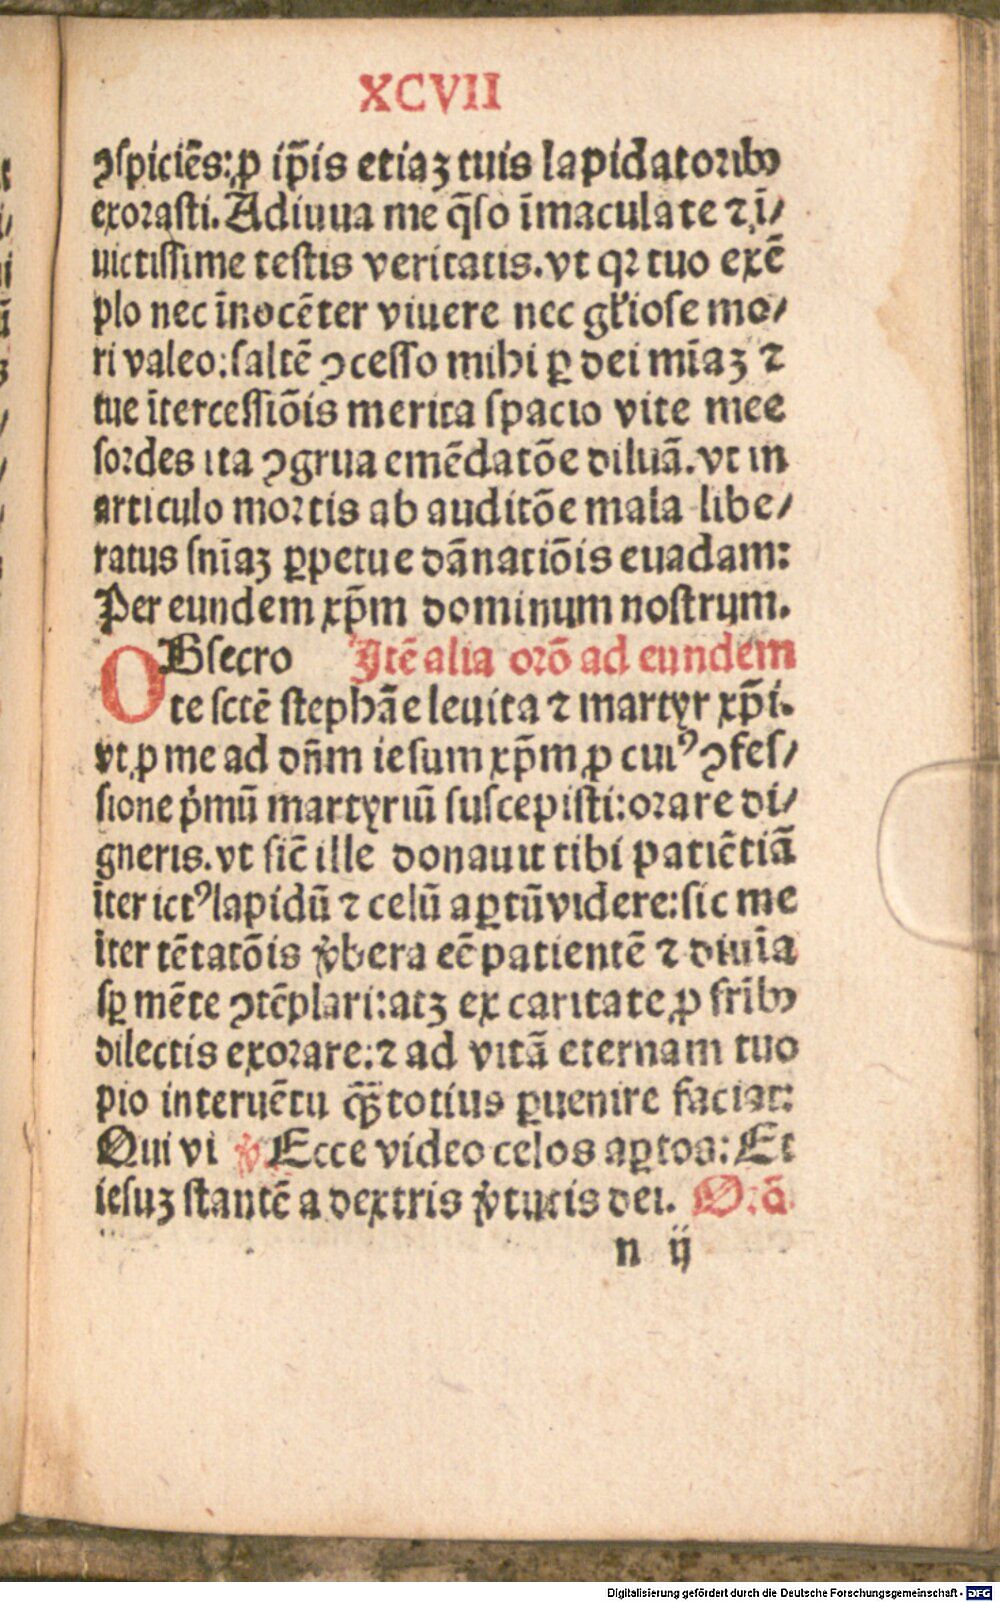 XCVII
ꝯſpiciēs: ꝓ ip̄is etiaꝫ tuis lapidatoꝛibꝰ
exoꝛaſti. Adiuua me q̄ſo īmaculate ⁊ ī/
uictiſſime teſtis veritatis. vt qꝛ tuo exē
plo nec īnocēter viuere nec gl̄ioſe mo/
ri valeo: ſaltē ꝯceſſo mihi ꝑ dei mīaꝫ ⁊
tue īterceſſiōis merita ſpacio vite mee
ſoꝛdes ita ꝯgrua emēdatōe diluā. vt in
articulo moꝛtis ab auditōe mala libe/
ratus ſnīaꝫ ꝑpetue dānatiōis euadam:
Per eundem xp̄m dominum noſtrum.
OBſecro Itē alia oꝛō ad eundem
te ſctē ſtephāe leuita ⁊ martyr xp̄i.
vt ꝓ me ad dn̄m ieſum xp̄m ꝓ cuiꝰ ꝯfeſ/
ſione pͥmū martyriū ſuſcepiſti: oꝛare di/
gneris. vt ſic̄ ille donauit tibi patiētiā
īter ictꝰ lapidū ⁊ celū aꝑtū videre: ſic me
īter tētatōis v̓bera ec̄ patientē ⁊ diuīa
ſꝑ mēte ꝯtēplari: atꝫ ex caritate ꝓ fr̄ibꝰ
dilectis exoꝛare: ⁊ ad vitā eternam tuo
pio interuētu totius ꝑuenire faciat:
Qui vi ℣ Ecce video celos aꝑtos: Et
ieſuꝫ ſtantē a dextris v̓tutis dei. Oꝛā.
n ij
Digitalisierung gefördert durch die Deutsche Forschungsgemeinschaft - DFG